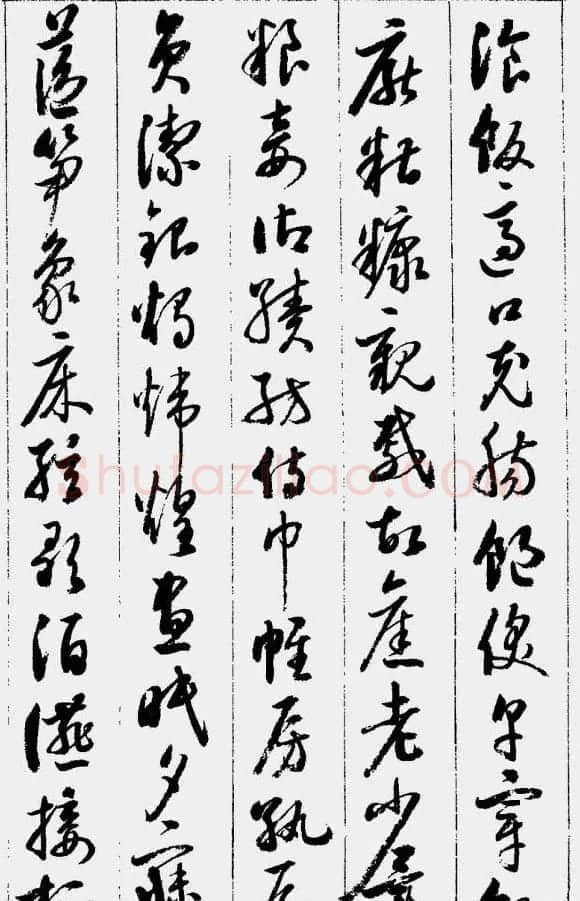 湌飯適口充腸飽飫亨宰
厭糟糠親戚故舊老少異
粮妾御績紡侍巾帷房紈
員潔銀燭煒煌晝眠夕寐
藍笋象床弦歌酒讌接
Shufaziliao.com